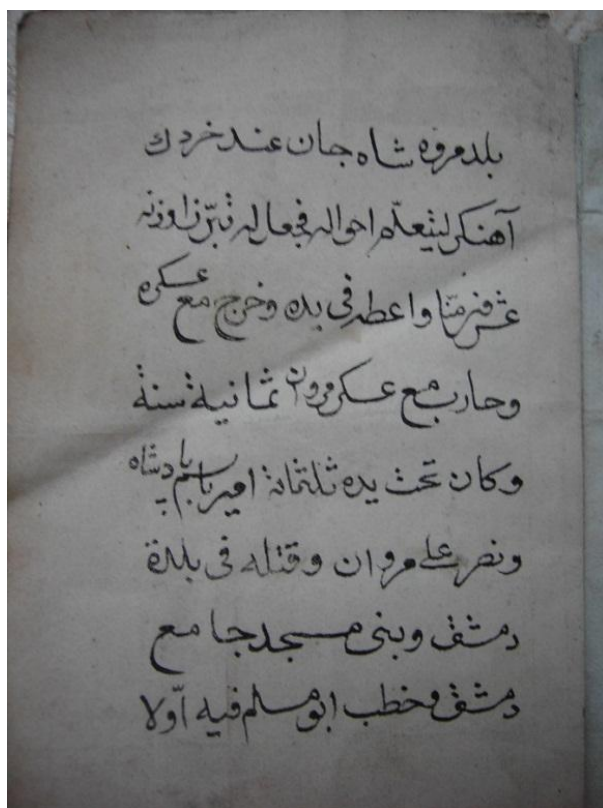 بلد مروه شاه جان عند خردك
آهنكر ليتعلم احواله فجعل له تبرّزا وزنه
عشر منّا واعطه فى يده وخرج مع عسكره
وحارب مع عسكر مروان ثمانية سنة
وكان تحت يده ثلثمائة امير باسم پادشاه
ونصر على مروان وقتله فى بلدة
دمشق وبنى مسجد جامع
دمشق وخطب ابو مسلم فيه اوّلا